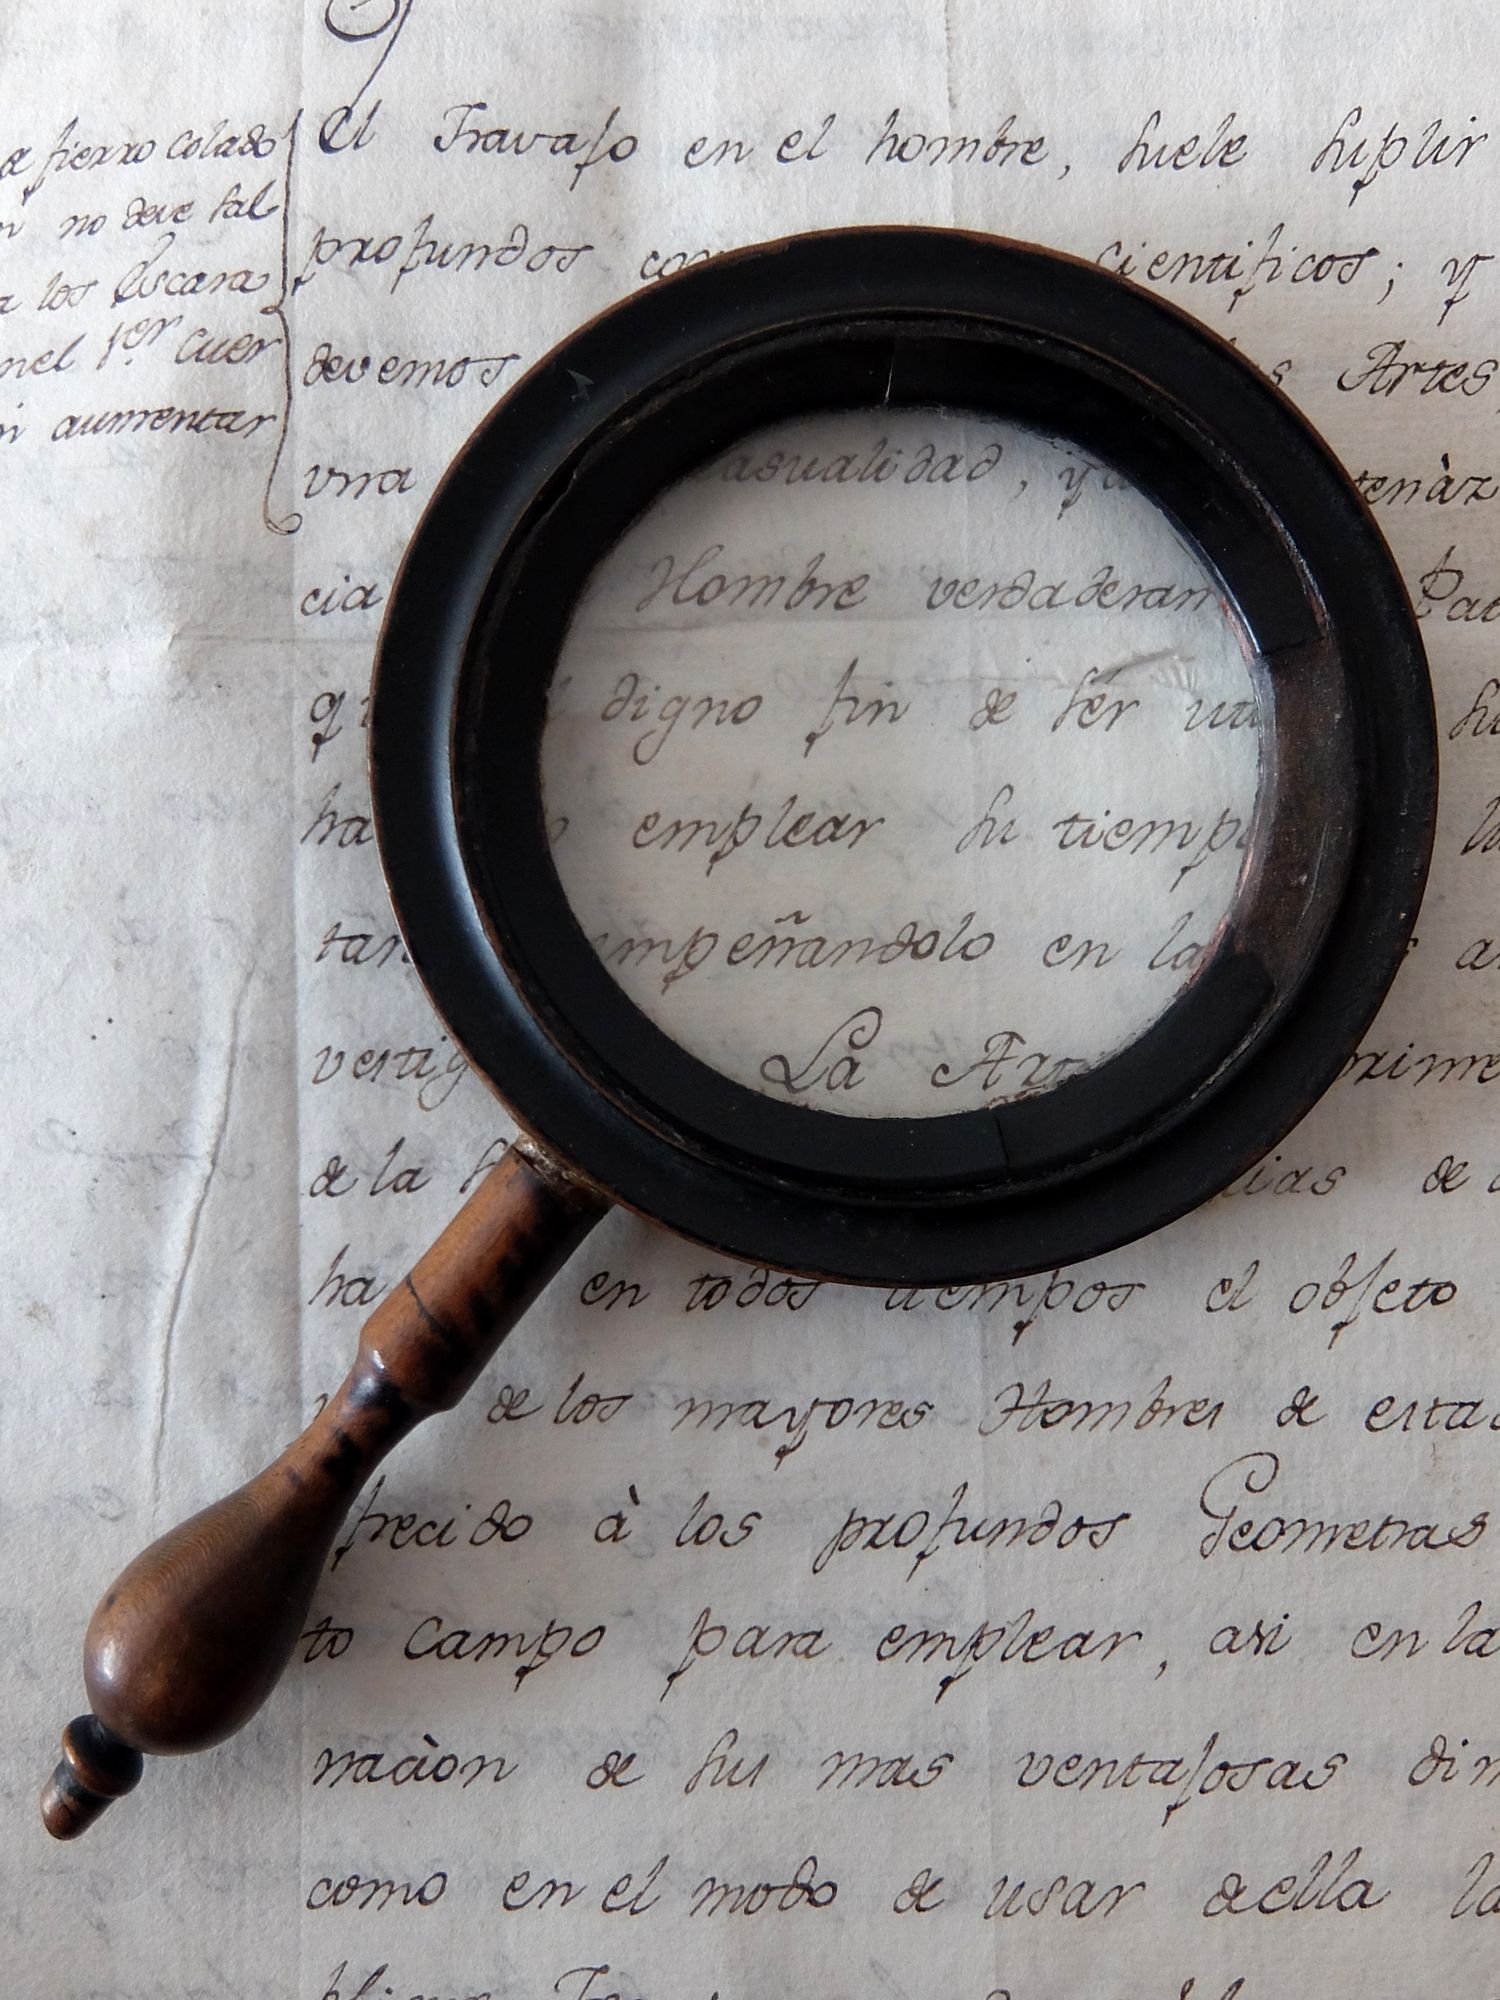 e fierro colado
no deve sal
a los Escara
nel 1er. Cuer
n aumentar
El Travajo en el hombre, suele suplir
profundos con cientificos; y
devemos s Artes,
una asualidad, ya tenàz
cia Hombre verdaderam Pat
qu digno fin de sér uti su
ha o emplear su tiempo la
tan mpeñandolo en la s an
vestig La Art prime
de la H cias de
ha en todos tiempos el objeto
de los mayores Hombres de estas
frecido à los profundos Geometras
to Campo para emplear, asi en la
nacion de sus mas ventajosas dim
como en el modo de usar de ella la